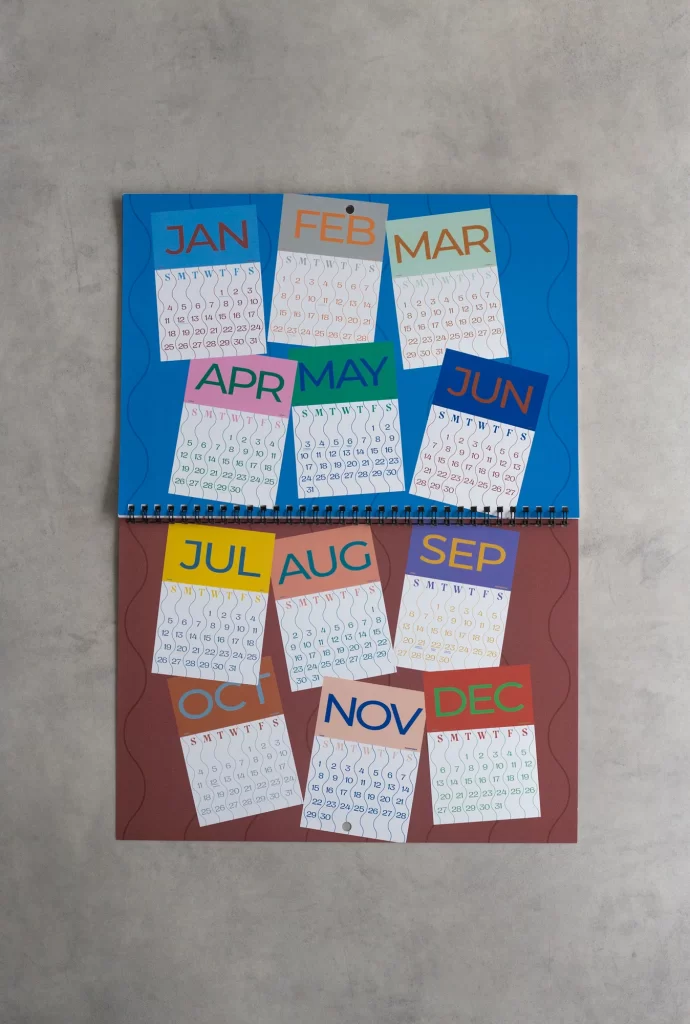 JAN
S M T W T F S
1 2 3
4 5 6 7 8 9 10
11 12 13 14 15 16 17
18 19 20 21 22 23 24
25 26 27 28 29 30 31
FEB
S M T W T F S
1 2 3 4 5 6 7
8 9 10 11 12 13 14
15 16 17 18 19 20 21
22 23 24 25 26 27 28
MAR
S M T W T F S
1 2 3 4 5 6 7
8 9 10 11 12 13 14
15 16 17 18 19 20 21
22 23 24 25 26 27 28
29 30 31
APR
S M T W T F S
1 2 3 4
5 6 7 8 9 10 11
12 13 14 15 16 17 18
19 20 21 22 23 24 25
26 27 28 29 30
MAY
S M T W T F S
1 2
3 4 5 6 7 8 9
10 11 12 13 14 15 16
17 18 19 20 21 22 23
24 25 26 27 28 29 30
31
JUN
S M T W T F S
1 2 3 4 5 6
7 8 9 10 11 12 13
14 15 16 17 18 19 20
21 22 23 24 25 26 27
28 29 30
JUL
S M T W T F S
1 2 3 4
5 6 7 8 9 10 11
12 13 14 15 16 17 18
19 20 21 22 23 24 25
26 27 28 29 30 31
AUG
S M T W T F S
1
2 3 4 5 6 7 8
9 10 11 12 13 14 15
16 17 18 19 20 21 22
23 24 25 26 27 28 29
30 31
SEP
S M T W T F S
1 2 3 4 5
6 7 8 9 10 11 12
13 14 15 16 17 18 19
20 21 22 23 24 25 26
27 28 29 30
OCT
S M T W T F S
1 2 3
4 5 6 7 8 9 10
11 12 13 14 15 16 17
18 19 20 21 22 23 24
25 26 27 28 29 30 31
NOV
S M T W T F S
1 2 3 4 5 6 7
8 9 10 11 12 13 14
15 16 17 18 19 20 21
22 23 24 25 26 27 28
29 30
DEC
S M T W T F S
1 2 3 4 5
6 7 8 9 10 11 12
13 14 15 16 17 18 19
20 21 22 23 24 25 26
27 28 29 30 31